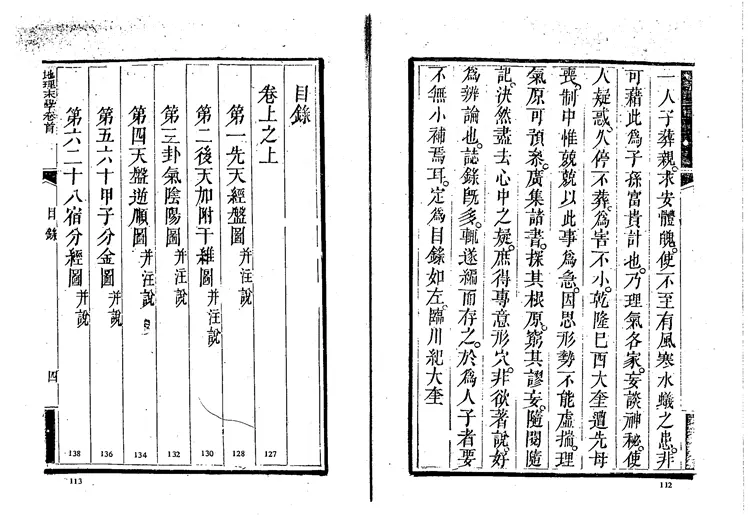 一人子葬親。求安體魄。使不至有風寒水蟻之患。非
可藉此為子孫富貴計也。乃理氣各家。妄談神秘。使
人疑惑。久停不葬。為害不小。乾隆己酉大奎遭先母
喪。制中惟兢兢以此事為急。因思形勢不能虛揣。理
氣原可預叅。廣集諸書。探其根原。窮其謬妄。隨閱隨
記。決然盡去心中之疑。庶得專意形穴。非欲著說。好
為辨論也。誌錄旣多。輒遂編而存之。於為人子者。要
不無小補焉耳。定為目錄如左。臨川紀大奎
112
目錄
卷上之上 127
第一先天經盤圖 并注說 128
第二後天加附干維圖 并注說 130
第三卦氣陰陽圖 并注說 132
第四天盤逆順圖 并注說 134
第五六十甲子分金圖 并說 136
第六二十八宿分經圖 并說 138
地理末學卷首
目錄
四
113